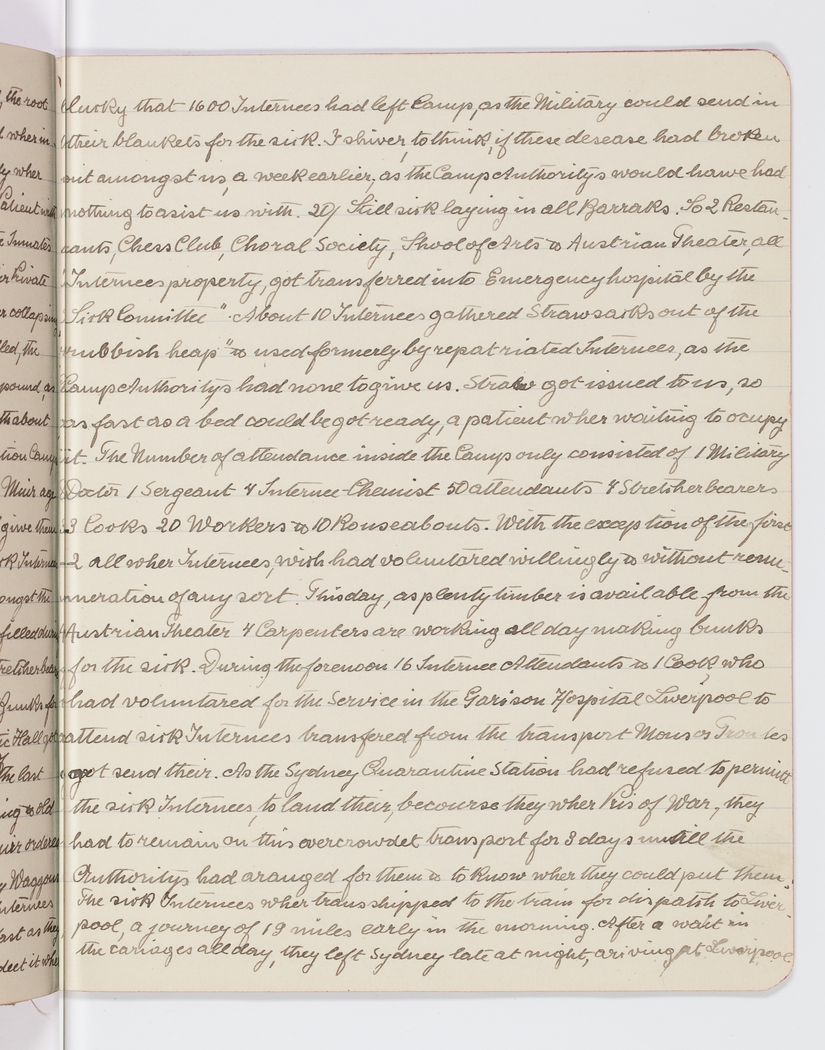 lucky that 1600 Internees had left Camp, as the Military could send in
their blankets for the sick. I shiver, to think, if these desease had broken
out amongst us, a week earlier, as the Camp Authoritys would hawe had
nothing to asist us with. 20/ Still sick laying in all Barraks. So 2 Restau-
rants, Chess Club, Choral Society, Shool of Arts & Austrian Theater, all
Internees property, got transferred into Emergency hospital by the
"Sick Comittee". About 10 Internees gathered Strawsacks out of the
"rubbish heap" & used formerly by repatriated Internees, as the
Camp Authoritys had none to give us. Straw got issued to us, so
as fast as a bed could be got ready, a patient wher waiting to occupy
it. The Number of attendance inside the Camp only consisted of 1 Military
Doctor 1 Sergeant 4 Internee Chemist 50 attendants 4 Stretcherbearers
3 Cooks 20 Workers & 10 Rouseabouts. With the exception of the first
2 all wher Internees, wich had voluntared willingly & without remu-
neration of any sort. This day, as plenty timber is available from the
Austrian Theater 4 Carpenters are working all day making bunks
for the sick. During the forenoon 16 Internee Attendants & 1 Cook who
had voluntared for the Service in the Garison Hospital Liverpool to
attend sick Internees transfered from the transport
got send their. As the Sydney Quarantine Station had refused to permitt
the sick Internees, to land their, becourse they wher Pris of War, they
had to remain on this overcrowdet transport for 3 days untill the
Authoritys had aranged for them & to know wher they could put them.
The sick Internees wher transshipped to the train for dispatch to Liver-
pool, a journey of 19 miles early in the morning. After a wait in
the cariages all day, they left Sydney late at night, ariving at Liverpool